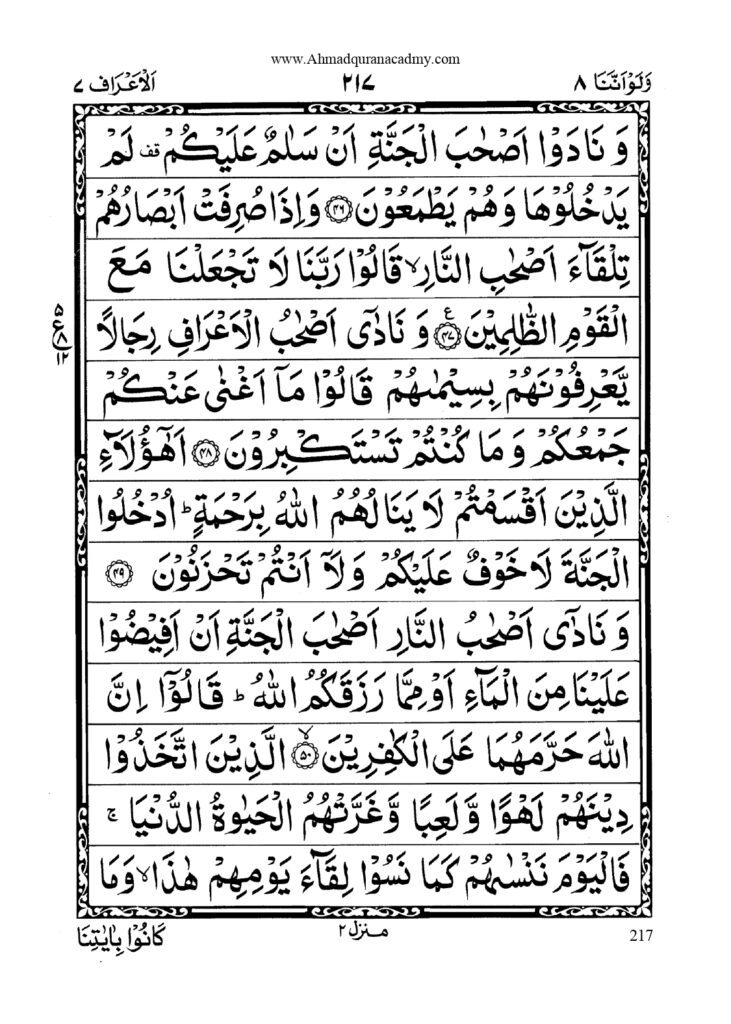 www.Ahmadquranacadmy.com
وَلَوْ اَنَّنَا ٨ ٢١٧ اَلْاَعْرَاف ٧
وَ نَادَوْا اَصْحٰبَ الْجَنَّةِ اَنْ سَلٰمٌ عَلَيْكُمْ قف لَمْ
يَدْخُلُوْهَا وَهُمْ يَطْمَعُوْنَ ﴿٤٦﴾ وَاِذَا صُرِفَتْ اَبْصَارُهُمْ
تِلْقَآءَ اَصْحٰبِ النَّارِ ۙ قَالُوْا رَبَّنَا لَا تَجْعَلْنَا مَعَ
الْقَوْمِ الظّٰلِمِيْنَ ﴿٤٧﴾ ع وَ نَادٰٓى اَصْحٰبُ الْاَعْرَافِ رِجَالًا
٥
ع ٨
١٢
يَّعْرِفُوْنَهُمْ بِسِيْمٰىهُمْ قَالُوْا مَآ اَغْنٰى عَنْكُمْ
جَمْعُكُمْ وَ مَا كُنْتُمْ تَسْتَكْبِرُوْنَ ﴿٤٨﴾ اَهٰٓؤُلَآءِ
الَّذِيْنَ اَقْسَمْتُمْ لَا يَنَالُهُمُ اللّٰهُ بِرَحْمَةٍ ؕ اُدْخُلُوا
الْجَنَّةَ لَا خَوْفٌ عَلَيْكُمْ وَلَآ اَنْتُمْ تَحْزَنُوْنَ ﴿٤٩﴾
وَ نَادٰٓى اَصْحٰبُ النَّارِ اَصْحٰبَ الْجَنَّةِ اَنْ اَفِيْضُوْا
عَلَيْنَا مِنَ الْمَآءِ اَوْ مِمَّا رَزَقَكُمُ اللّٰهُ ؕ قَالُوْٓا اِنَّ
اللّٰهَ حَرَّمَهُمَا عَلَى الْكٰفِرِيْنَ ﴿٥٠﴾ ۙ الَّذِيْنَ اتَّخَذُوْا
دِيْنَهُمْ لَهْوًا وَّ لَعِبًا وَّ غَرَّتْهُمُ الْحَيٰوةُ الدُّنْيَا ۚ
فَالْيَوْمَ نَنْسٰىهُمْ كَمَا نَسُوْا لِقَآءَ يَوْمِهِمْ هٰذَا ۙ وَمَا
217 منزل ٢ كَانُوْا بِاٰيٰتِنَا